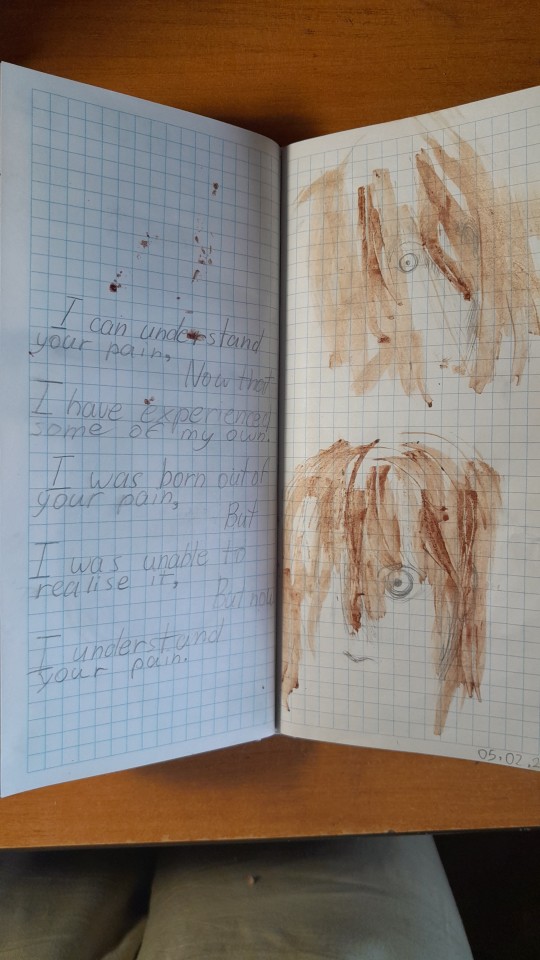 I can understand
your pain,
Now that
I have experienced
some of my own.
I was born out of
your pain,
But
I was unable to
realise it,
But now
I understand
your pain.
05.02.2